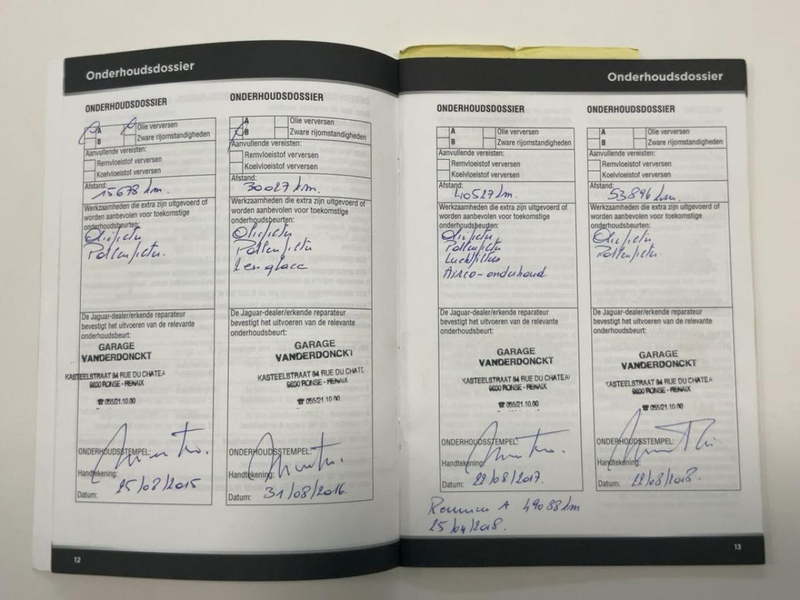 Onderhoudsdossier
ONDERHOUDSDOSSIER
A
Olie verversen
B
Zware rijomstandigheden
Aanvullende vereisten:
Remvloeistof verversen
Koelvloeistof verversen
Afstand:
15678 km.
Werkzaamheden die extra zijn uitgevoerd of
worden aanbevolen voor toekomstige
onderhoudsbeurten:
De Jaguar-dealer/erkende reparateur
bevestigt het uitvoeren van de relevante
onderhoudsbeurt:
GARAGE
VANDERDONCKT
KASTEELSTRAAT 84 RUE DU CHATEA
9600 RONSE - RENAIX
☎ 055/21.10.00
ONDERHOUDSSTEMPEL:
Handtekening:
Datum:
25/08/2015
ONDERHOUDSDOSSIER
A
Olie verversen
B
Zware rijomstandigheden
Aanvullende vereisten:
Remvloeistof verversen
Koelvloeistof verversen
Afstand:
30027 km.
Werkzaamheden die extra zijn uitgevoerd of
worden aanbevolen voor toekomstige
onderhoudsbeurten:
De Jaguar-dealer/erkende reparateur
bevestigt het uitvoeren van de relevante
onderhoudsbeurt:
GARAGE
VANDERDONCKT
KASTEELSTRAAT 84 RUE DU CHATE
9600 RONSE - RENAIX
☎ 055/21.10.00
ONDERHOUDSSTEMPEL:
Handtekening:
Datum:
31/08/2016
12
Onderhoudsdossier
ONDERHOUDSDOSSIER
A
Olie verversen
B
Zware rijomstandigheden
Aanvullende vereisten:
Remvloeistof verversen
Koelvloeistof verversen
Afstand:
40527 km
Werkzaamheden die extra zijn uitgevoerd of
worden aanbevolen voor toekomstige
onderhoudsbeurten:
Airco-onderhoud
De Jaguar-dealer/erkende reparateur
bevestigt het uitvoeren van de relevante
onderhoudsbeurt:
GARAGE
VANDERDONCKT
KASTEELSTRAAT 84 RUE DU CHATEA
9600 RONSE - RENAIX
☎ 055/21.10.00
ONDERHOUDSSTEMPEL:
Handtekening:
Datum:
22/08/2017.
A 49088 km
25/04/2018.
ONDERHOUDSDOSSIER
A
Olie verversen
B
Zware rijomstandigheden
Aanvullende vereisten:
Remvloeistof verversen
Koelvloeistof verversen
Afstand:
53846 km.
Werkzaamheden die extra zijn uitgevoerd of
worden aanbevolen voor toekomstige
onderhoudsbeurten:
De Jaguar-dealer/erkende reparateur
bevestigt het uitvoeren van de relevante
onderhoudsbeurt:
GARAGE
VANDERDONCKT
KASTEELSTRAAT 84 RUE DU CHATEA
9600 RONSE - RENAIX
☎ 055/21.10.00
ONDERHOUDSSTEMPEL:
Handtekening:
Datum:
22/08/2018.
13